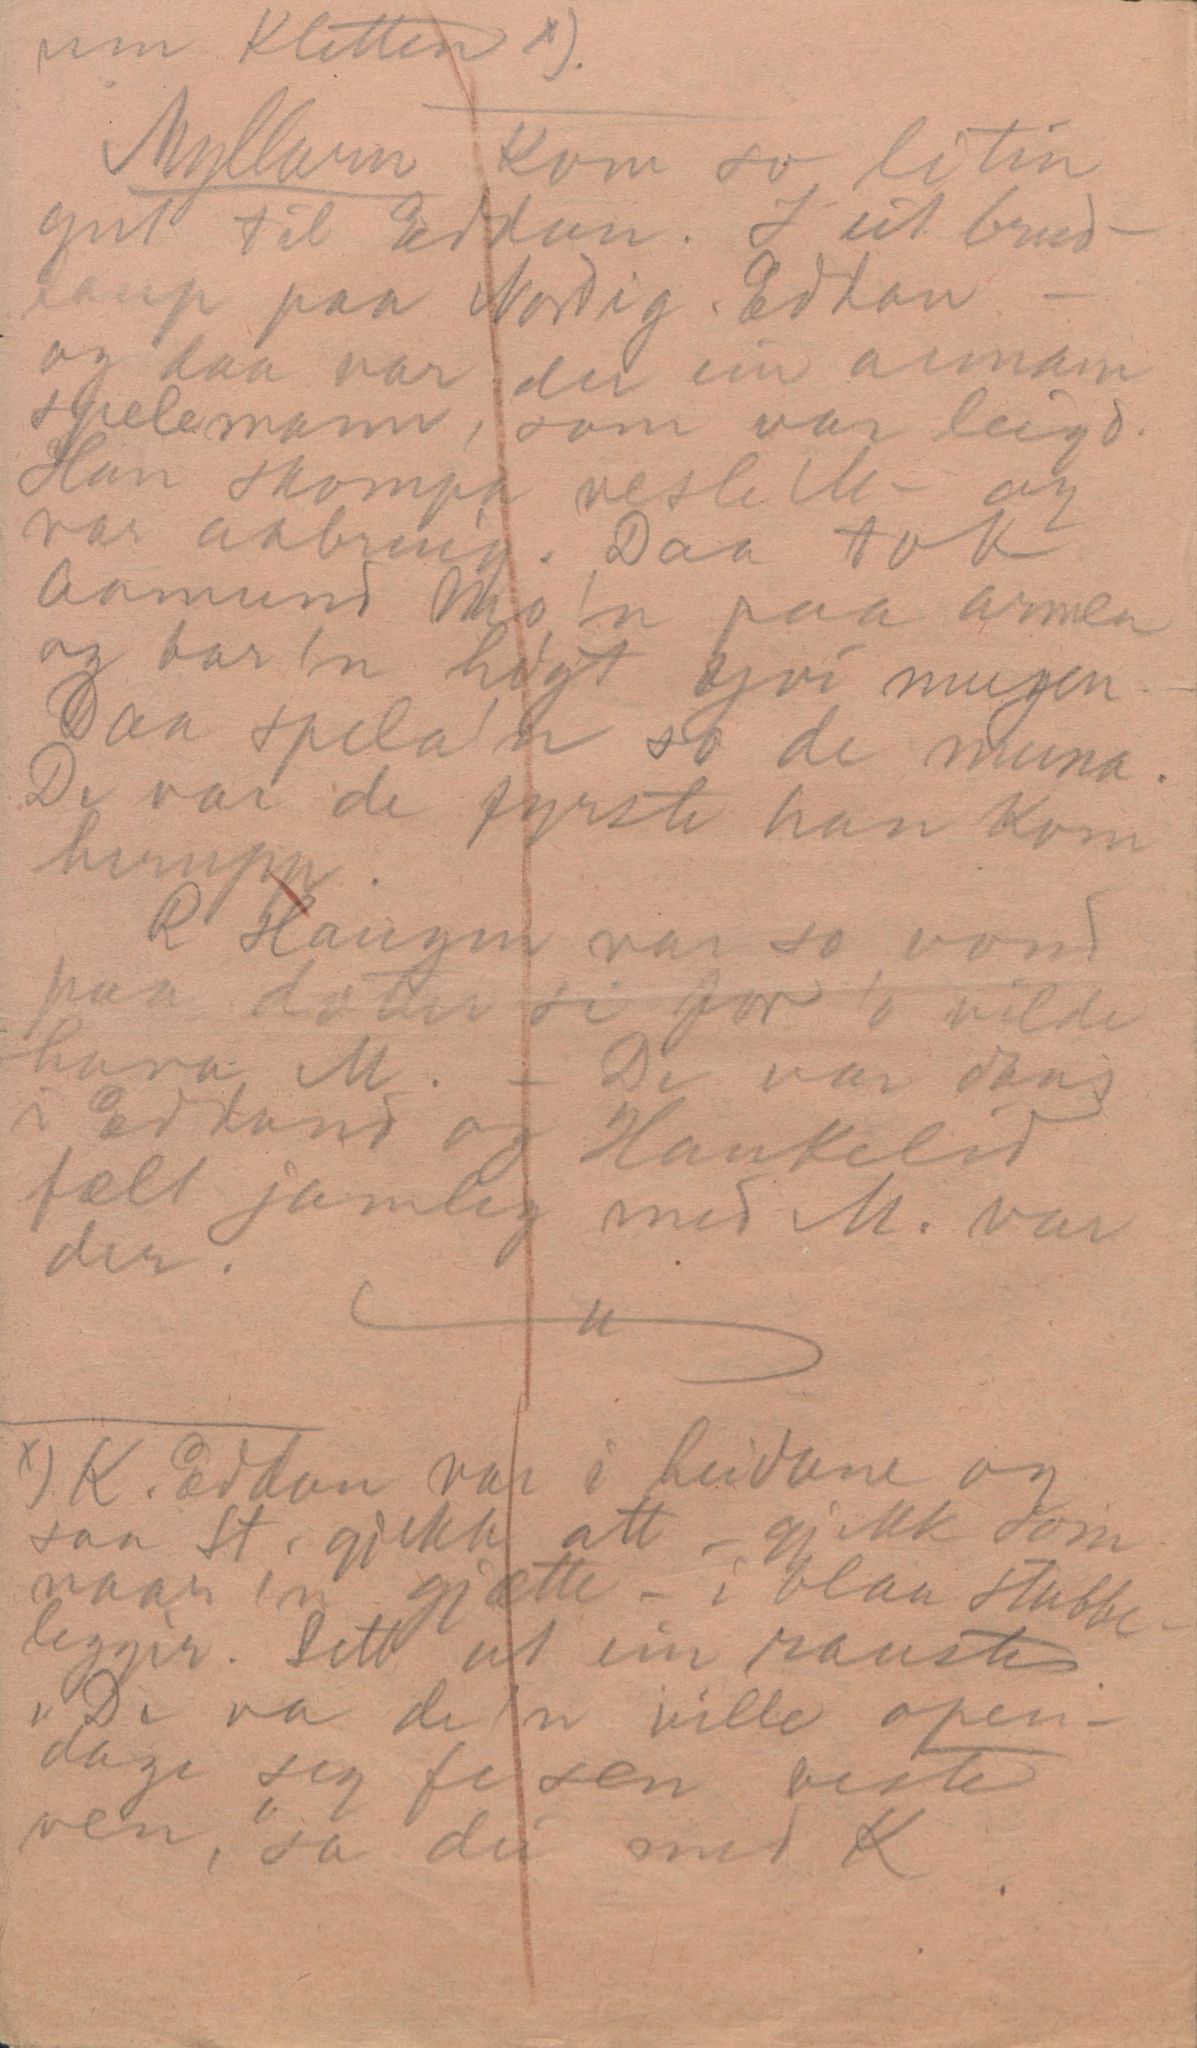 um Kletten x).
Myllarn kom so litin
gut til Edland. I eit brud-
laup paa Nordig. Edland -
og daa var der ein annain
spelemann, som var leigd.
Han skompa vesle M- og
var aabruig. Daa tok
Aamund Mo'n paa armen
og bar'n høgt yvi mugen -
Daa spela'n so de muna.
De var de fyrste han kom
herupp.
R Haugen var so vond
paa doter si for 'o vilde
hava M. - De var dans
i Edland og Haukelid
fælt jamleg med M. var
der.
"
x) K. Edland var i heidane og
saa St. gjekk att - gjekk som
naar 'n gjætte - i blaa stubbe-
leggir. Sett ut ein rauste
"De va de'n ville open-
dage seg fe sen beste
ven," sa dei med K